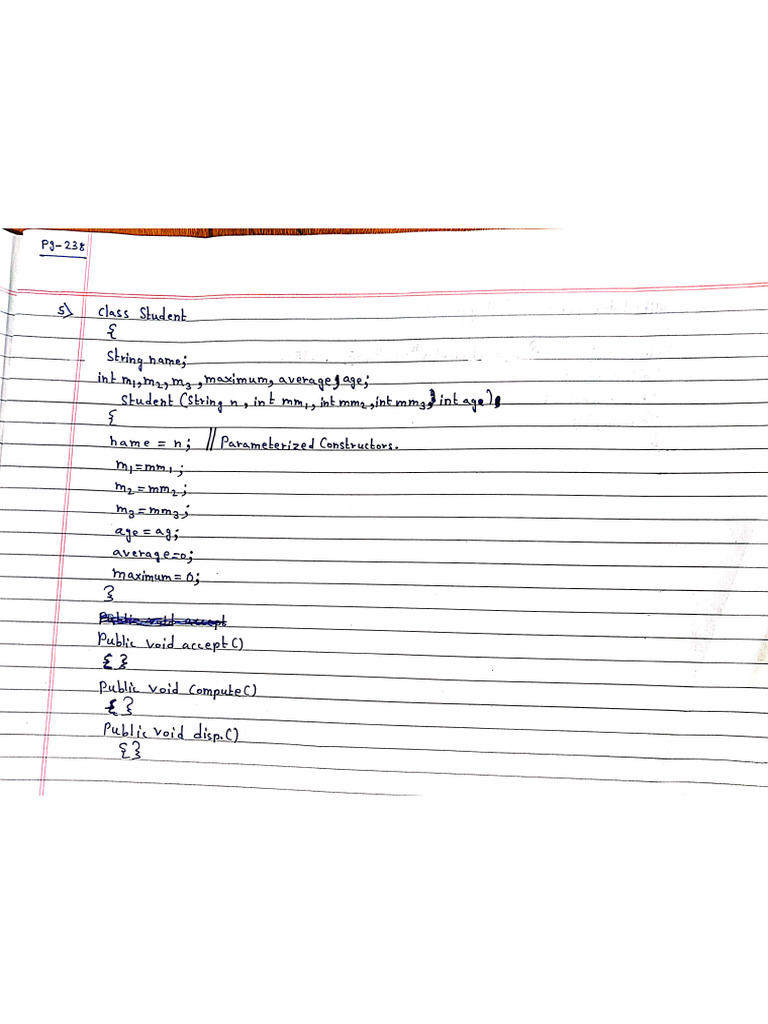 Pg-238
5) Class Student
{
String name;
int m1, m2, m3, maximum, average, age;
Student (String n, int mm1, int mm2, int mm3, int age)
{
name = n; // Parameterized Constructors.
m1 = mm1;
m2 = mm2;
m3 = mm3;
age = ag;
average = 0;
maximum = 0;
}
Public void accept
Public void accept()
{}
Public void Compute()
{}
Public void disp.()
{}